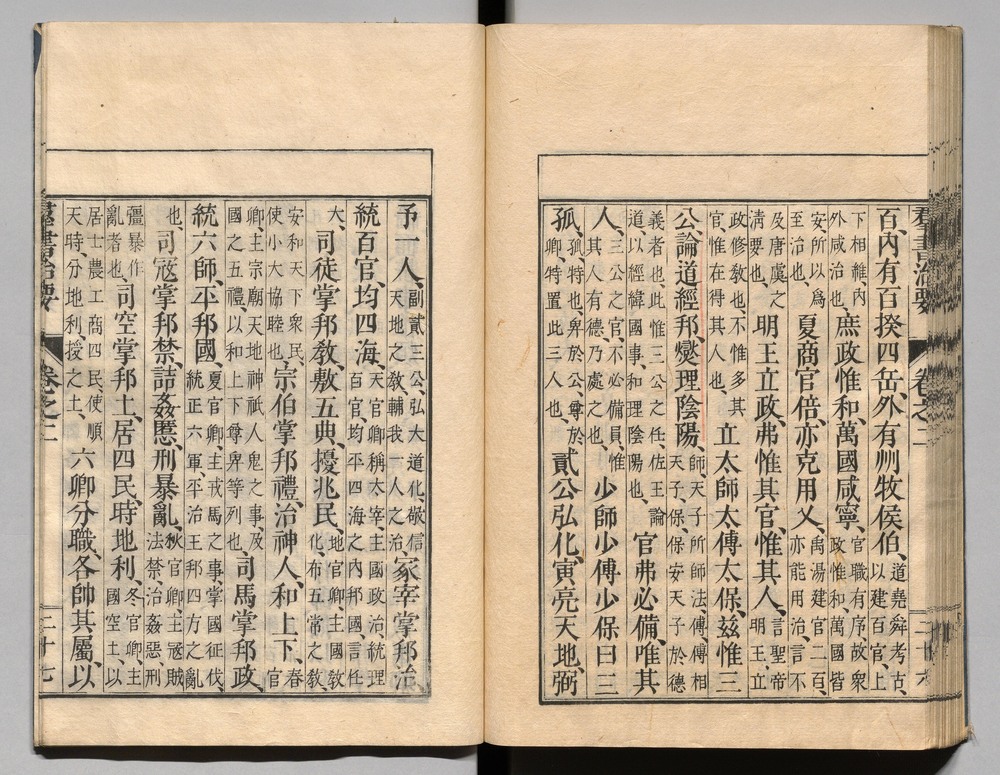 羣書治要 卷之二 二十六
百、內有百揆四岳、外有州牧侯伯、道堯舜考古、以建百官、上
下相維、內外咸治也、庶政惟和、萬國咸寧、官職有序、故衆政惟和、萬國皆
安、所以爲至治也、夏商官倍、亦克用乂、禹湯建官二百、亦能用治、言不
及唐虞之淸要也、明王立政、弗惟其官、惟其人、言聖帝明王立
政修敎也、不惟多其官、惟在得其人也、立太師太傅太保、茲惟三
公、論道經邦、燮理陰陽、師、天子所師法、傅、傅相天子、保、保安天子於德
義者也、此惟三公之任、佐王論道、以經緯國事、和理陰陽也、官弗必備、唯其
人、三公之官、不必備員、惟其人有德、乃處之也、少師少傅少保曰三
孤、孤、特也、卑於公、尊於卿、特置此三人也、貳公弘化、寅亮天地、弼
予一人、副貳三公、弘大道化、敬信天地之敎、輔我一人之治、冢宰掌邦治
統百官、均四海、天官卿稱太宰、主國政治、統理百官、均平四海之內邦國、言任
大、司徒掌邦敎、敷五典、擾兆民、地官卿、主國敎化、布五常之敎
安和天下衆民、使小大協睦也、宗伯掌邦禮、治神人、和上下、春官
卿、主宗廟天地神祇人鬼之事、及國之五禮、以和上下尊卑等列也、司馬掌邦政、
統六師、平邦國、夏官卿、主戎馬之事、掌國征伐、統正六軍、平治王邦四方之亂
也、司寇掌邦禁、詰姦慝、刑暴亂、秋官卿、主寇賊法禁、治姦惡、刑
彊暴作亂者也、司空掌邦土、居四民、時地利、冬官卿、主國空土、以
居士農工商四民、使順天時、分地利、授之土、六卿分職、各帥其屬、以
羣書治要 卷之二 二十七